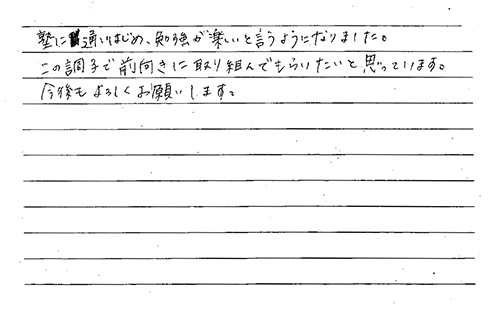 塾に通いはじめ、勉強が楽しいと言うようになりました。
この調子で前向きに取り組んでもらいたいと思っています。
今後もよろしくお願いします。